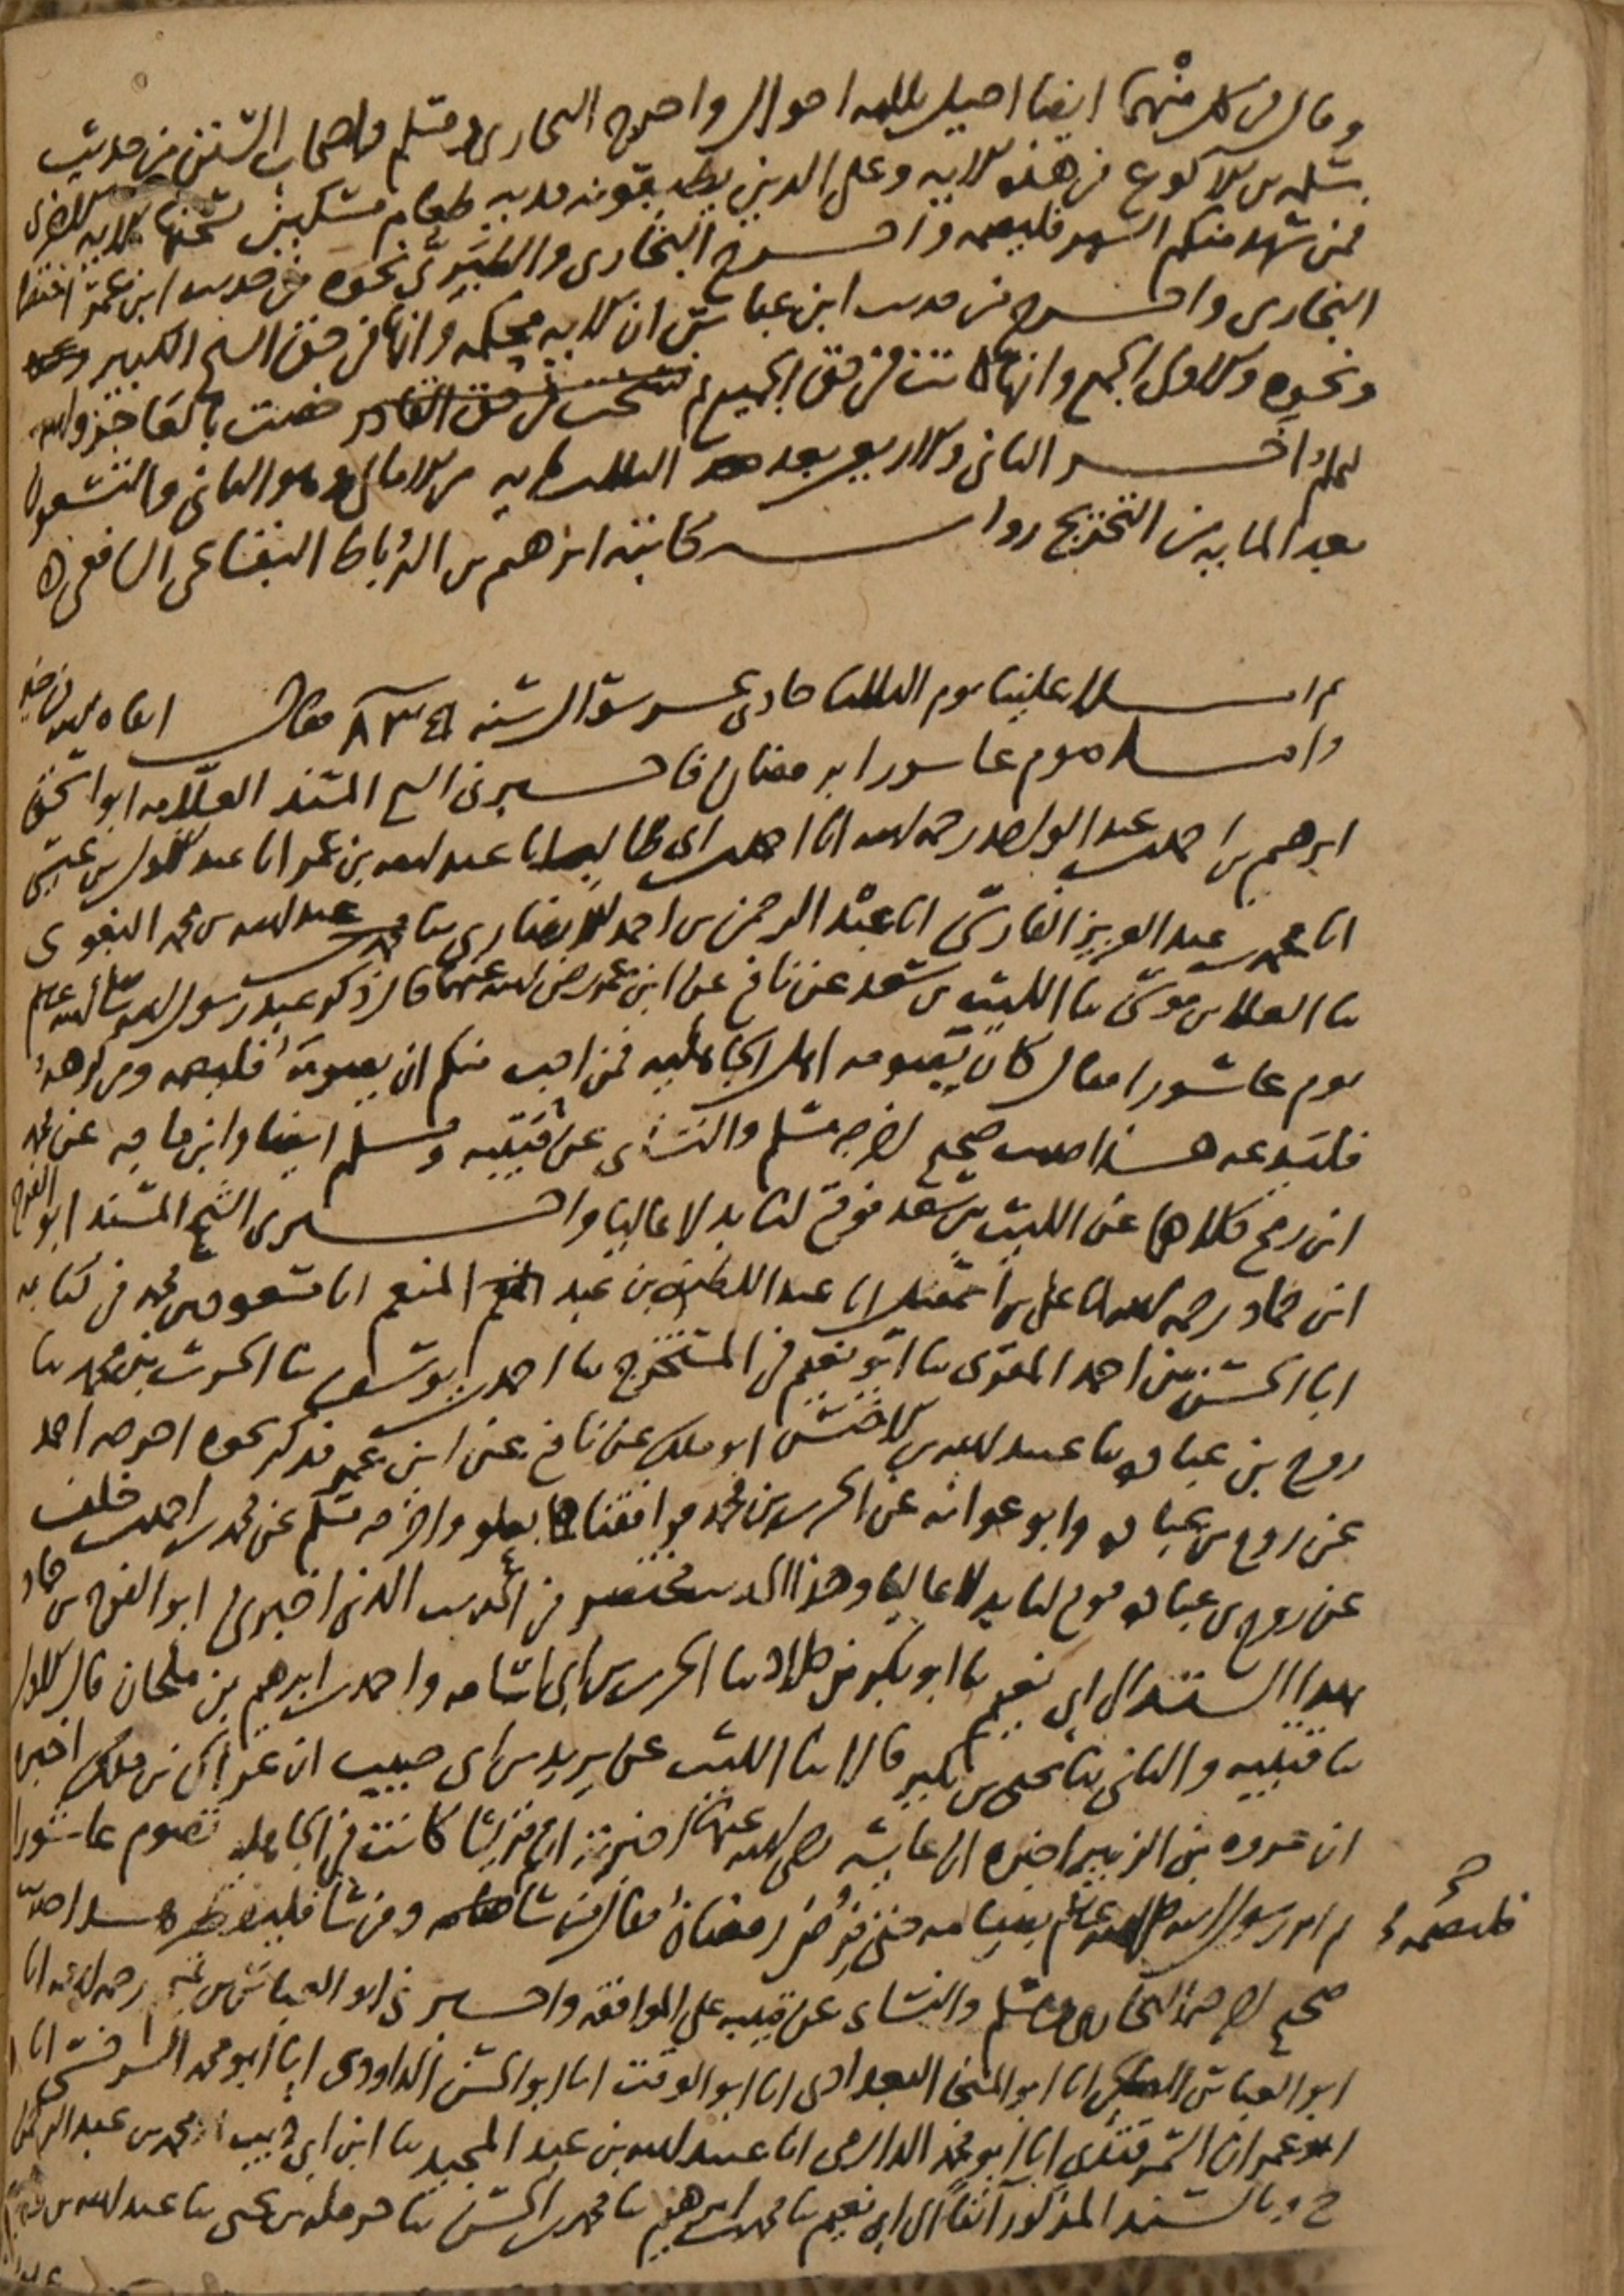 وقال في كل منهما ايضا احيل ثلاثة احوال واخرج البخاري ومسلم واصحاب السنن من حديث
سلمة بن الاكوع في هذه الاية وعلى الذين يطيقونه فدية طعام مسكين نسختها الاية الاخرى
فمن شهد منكم الشهر فليصمه واخرج البخاري والطبري نحوه من حديث ابن عمر
البخاري واخرج من حديث ابن عباس ان الاية محكمة وانها في حق الشيخ الكبير
ونحوه والاولى الجمع وانها كانت في حق الجميع ثم خصت بالعاجز والله
اعلم اخر الثاني والاربعين بعد الثلث مايه من الامالي وهو الثاني والتسعون
بعد المايه من التخريج رواية كاتبه ابرهيم بن الرباط البقاعي الشافعي
ثم املا علينا يوم الثلثا حادي عشر شوال سنه فقال
واما صوم عاشورا برمضان فاخبرني الشيخ المسند العلامه ابو اسحق
ابرهيم بن احمد بن عبد الواحد رحمه الله انا احمد بن ابي طالب انا عبد الله بن عمر انا عبد الاول بن عيسى
انا محمد بن عبد العزيز الفارسي انا عبد الرحمن بن احمد الانصاري ثنا عبد الله بن محمد البغوي
ثنا العلا بن موسى ثنا الليث بن سعد عن نافع عن ابن عمر رضي الله عنهما قال ذكر عند رسول الله صلى الله عليه وسلم
يوم عاشورا فقال كان يصومه اهل الجاهليه فمن احب منكم ان يصومه فليصمه ومن كرهه
فليدعه هذا حديث صحيح اخرجه مسلم والنسائي عن قتيبه ومسلم ايضا وابن ماجه عن محمد
ابن رمح كلاهما عن الليث بن سعد فوقع لنا بدلا عاليا واخبرني الشيخ المسند ابو الفرج
ابن حماد رحمه الله انا علي بن اسمعيل انا عبد اللطيف بن عبد المنعم انا مسعود بن محمد في كتابه
انا الحسن بن احمد المقري ثنا ابو نعيم في المستخرج ثنا احمد بن يوسف ثنا الحرث بن محمد ثنا
روح بن عباده ثنا عبيد الله بن الاخنس ابو ملك عن نافع عن ابن عمر فذكر نحوه اخرجه احمد
عن روح بن عباده وابو عوانه عن الحرث بن محمد فوافقناهما بعلو واخرجه مسلم عن محمد بن احمد بن خلف
عن روح بن عباده فوقع لنا بدلا عاليا وهذا الحديث مختصر من الحديث الذي اخبرني ابو الفرج بن حماد
بهذا السند الى ابي نعيم ثنا ابو بكر بن خلاد ثنا الحرث بن ابي اسامه واحمد بن ابرهيم بن ملحان قال الاول
ثنا قتيبه والثاني ثنا يحيى بن بكير قالا ثنا الليث عن يزيد بن ابي حبيب ان عراك بن ملك اخبره
ان عروه بن الزبير اخبره ان عايشه رضي الله عنها اخبرته ان قريشا كانت في الجاهليه تصوم عاشورا
ثم امر رسول الله صلى الله عليه وسلم بصيامه حتى فرض رمضان فقال من شا ومن شا فليفطره هذا حديث
فليصمه
صحيح اخرجه البخاري ومسلم والنسائي عن قتيبه على الموافقه واخبرني ابو العباس بن رحمه الله انا
ابو العباس انا ابو المنجا البغدادي انا ابو الوقت انا ابو الحسن الداودي انا ابو محمد السرخسي انا
ابو عمران السمرقندي انا ابو محمد الدارمي انا عبيد الله بن عبد المجيد ثنا ابن ابي ذيب محمد بن عبد الرحمن
ح وبالسند المذكور آنفا الى ابي نعيم ثنا محمد بن ابرهيم ثنا محمد بن الحسن ثنا حرمله بن يحيى ثنا عبد الله بن